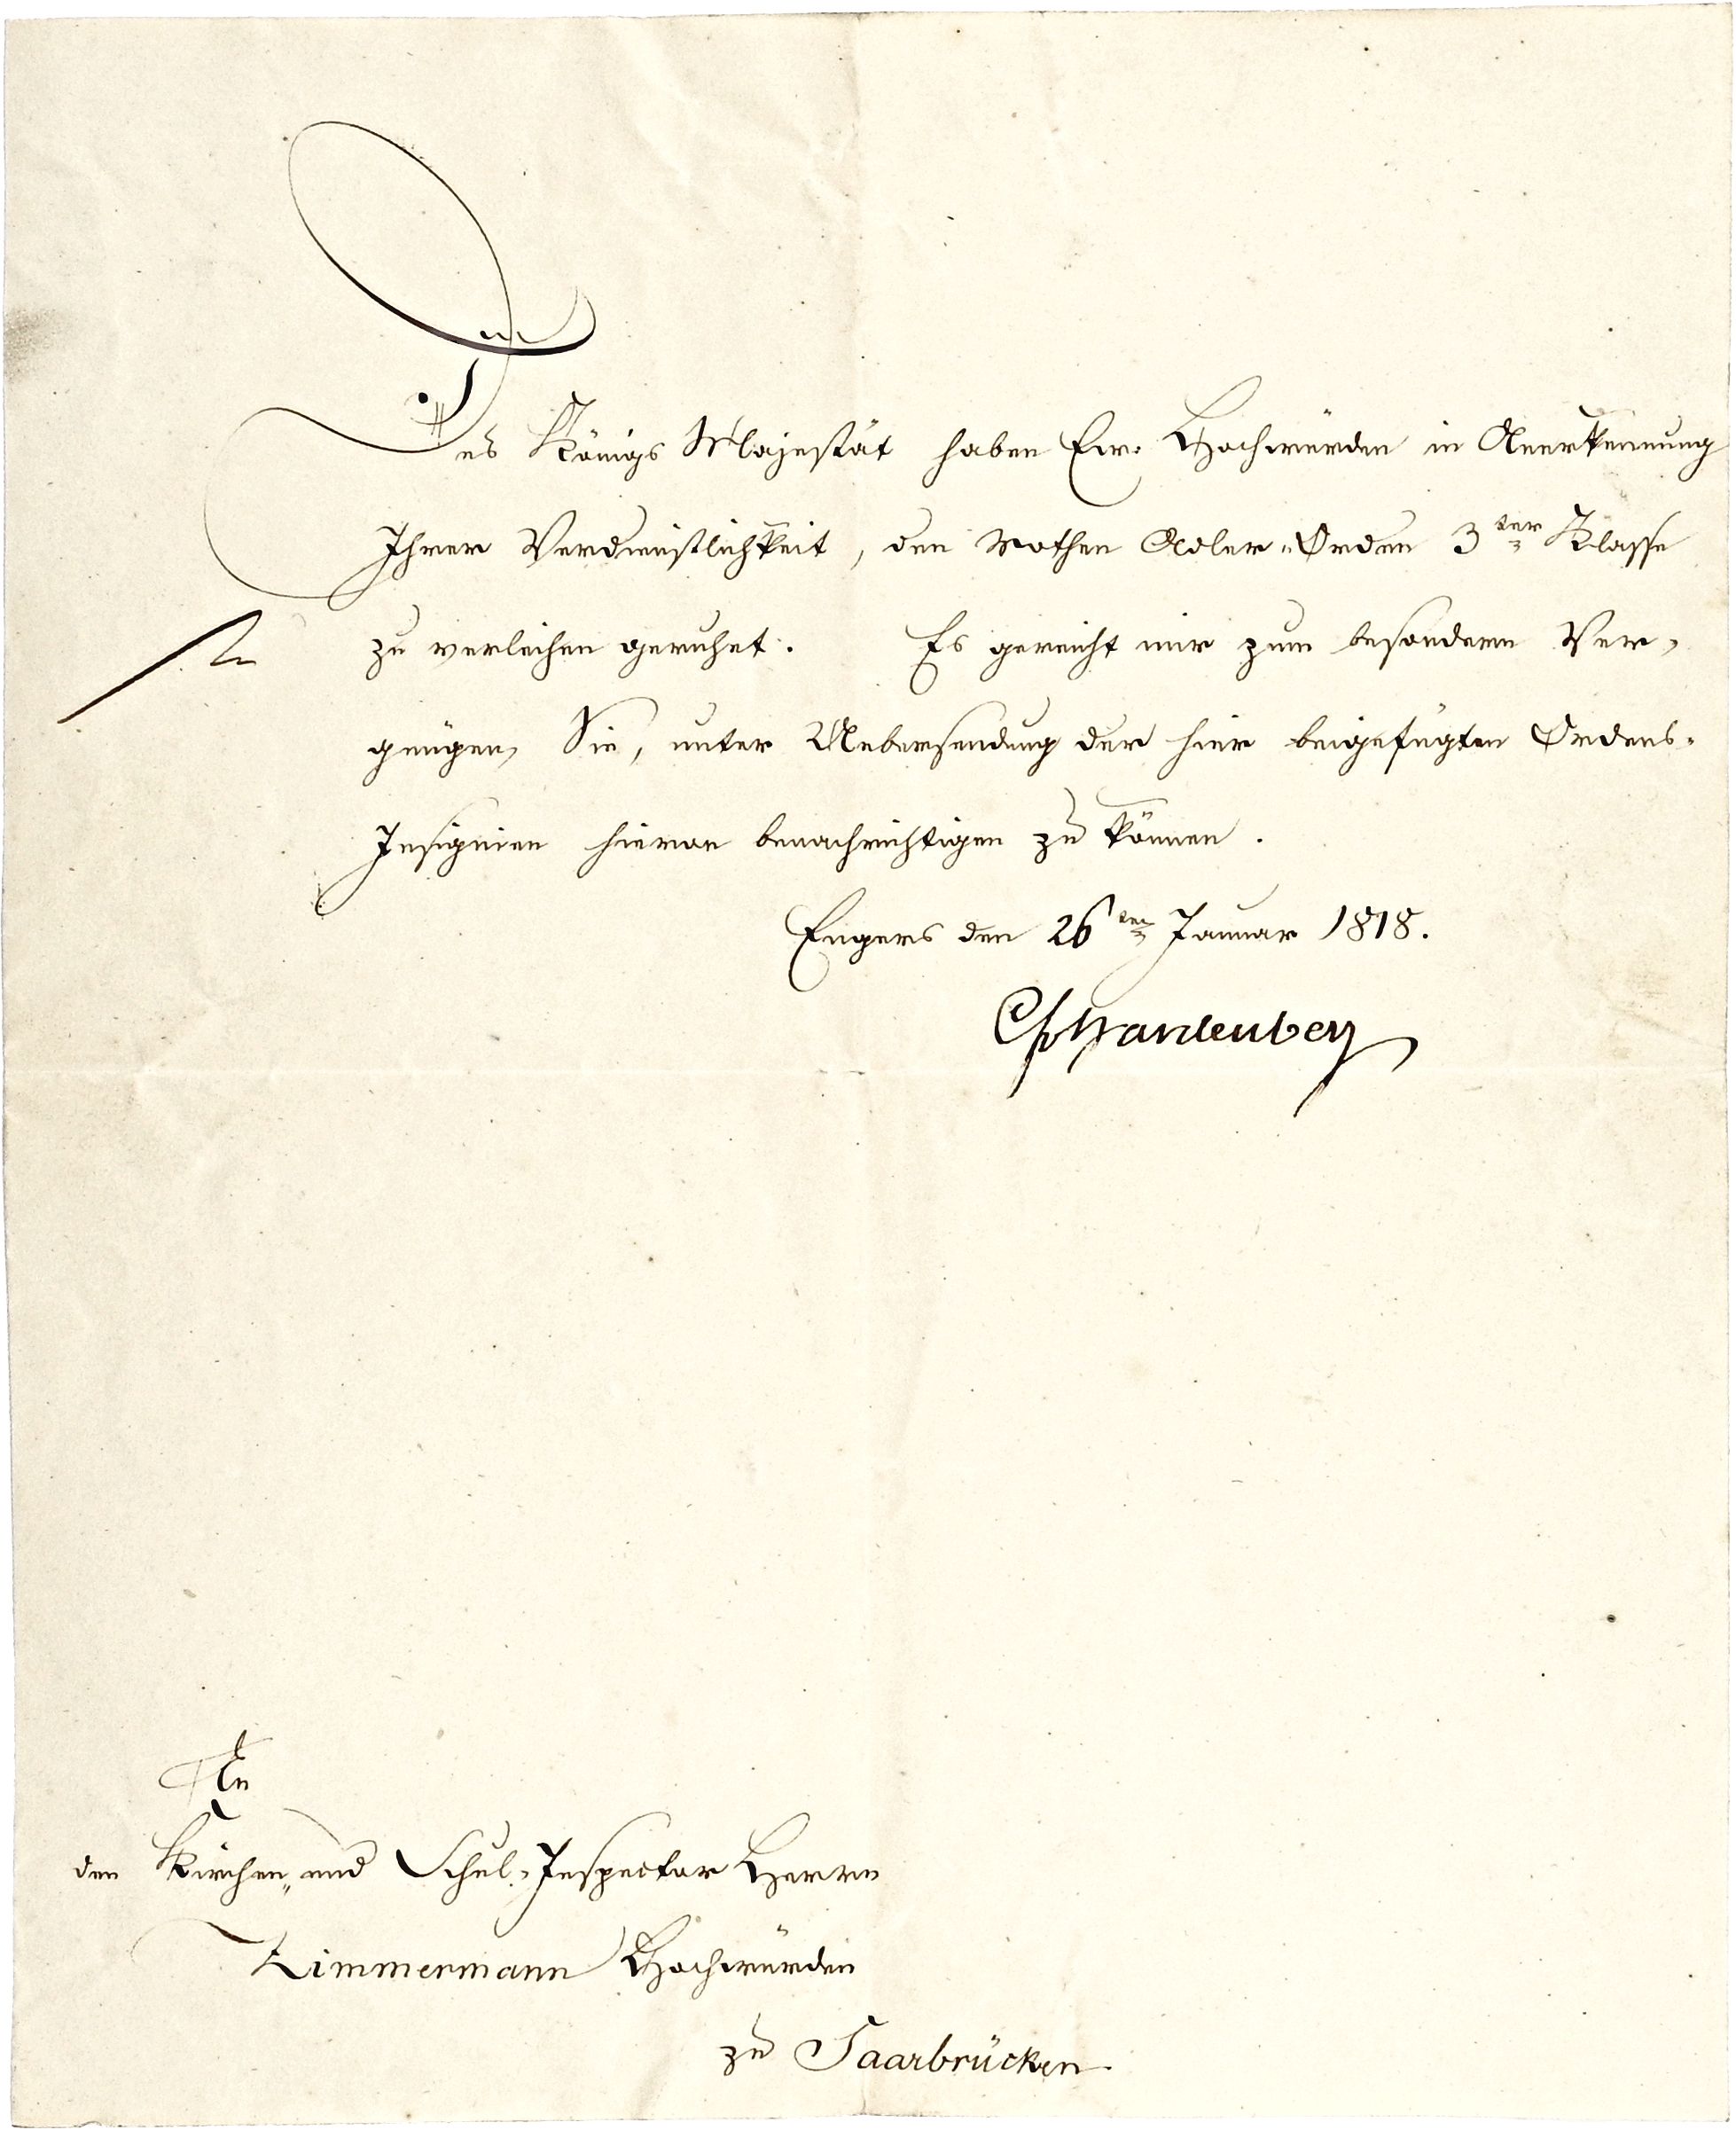 Des Königs Majestät haben Ew. Hochwürden in Anerkennung
Ihrer Verdienstlichkeit, den Rothen Adler-Orden 3ter Klasse
zu verleihen geruhet. Es gereicht mir zum besondern Ver-
gnügen, Sie, unter Uebersendung der hier beigefügten Ordens-
Insignien hievon benachrichtigen zu können.
Engers den 26ten Januar 1818.
CfvHardenberg
An
den Kirchen- und Schul-Inspector Herrn
Zimmermann Hochwürden
zu Saarbrücken.